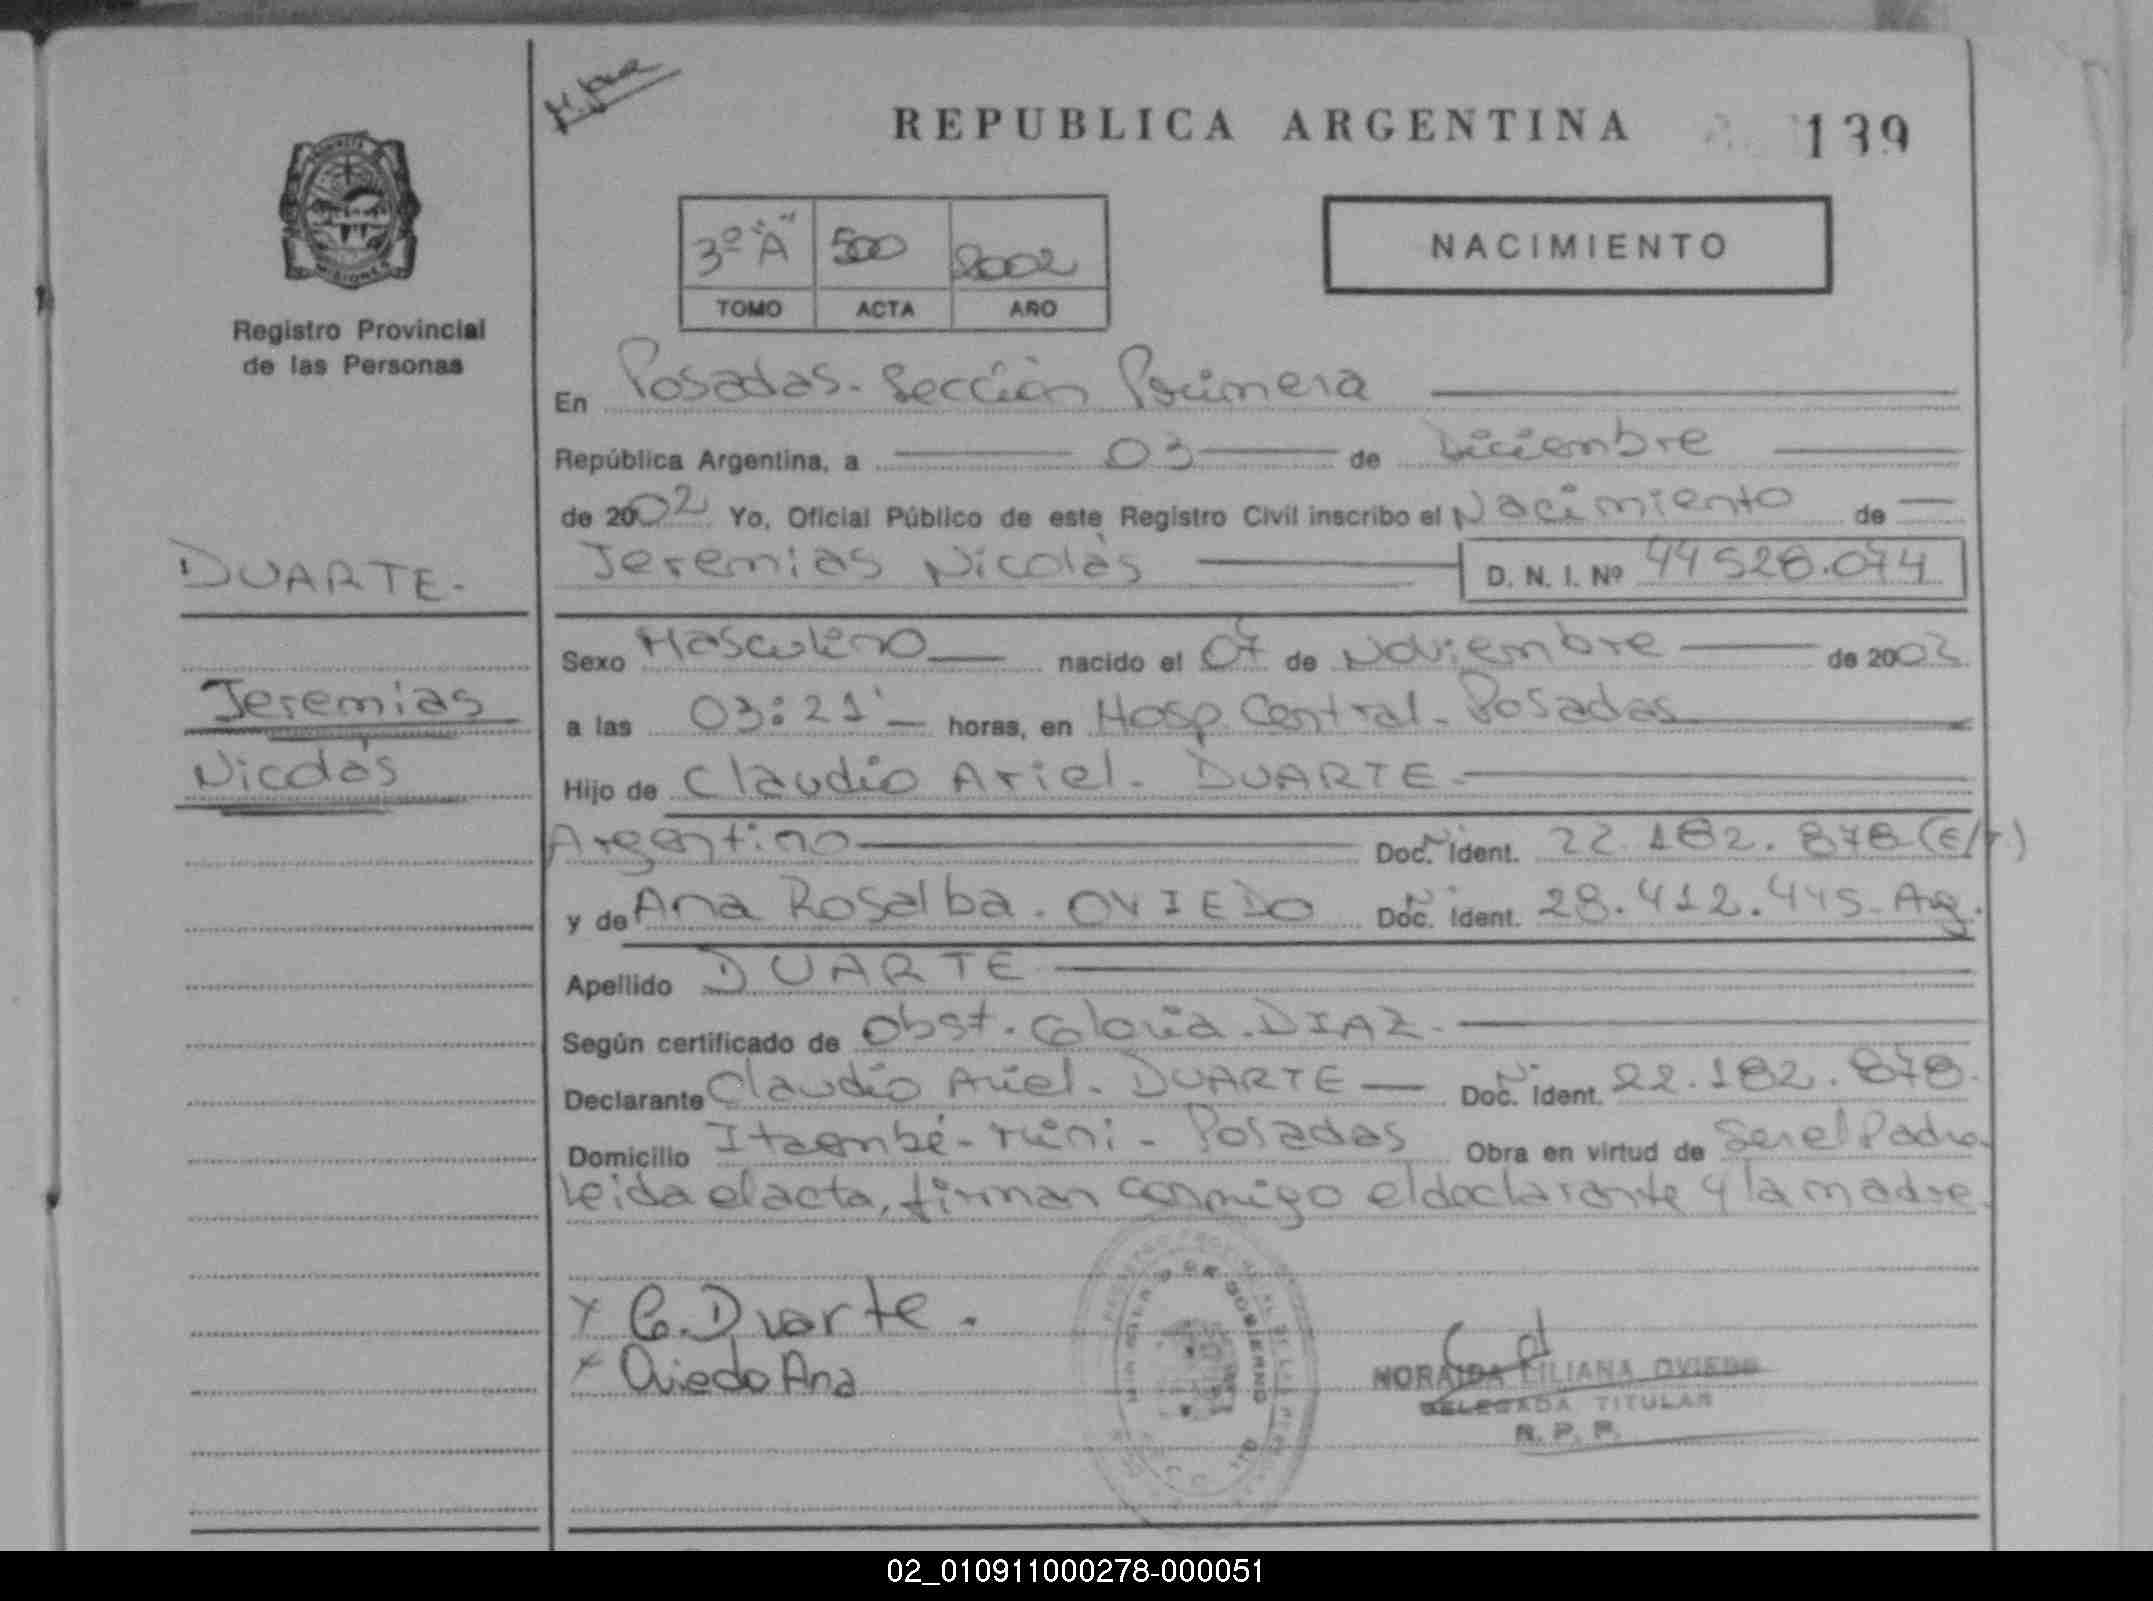 REPUBLICA ARGENTINA
139
Registro Provincial
de las Personas
3º "A" 500 2002
TOMO ACTA AÑO
NACIMIENTO
En Posadas - Sección Primera
República Argentina, a 03 de Diciembre
de 2002 Yo, Oficial Público de este Registro Civil inscribo el Nacimiento de
Jeremias Nicolás D. N. I. Nº 44528.074
DUARTE.
Jeremias
Nicolás
Sexo Masculino nacido el 07 de Noviembre de 2002
a las 03:21' horas, en Hosp. Central - Posadas
Hijo de Claudio Ariel - DUARTE -
Argentino Doc. Ident. 22.182.878 (E/T)
y de Ana Rosalba - OVIEDO Doc. Ident. 28.412.445 - Arg.
Apellido DUARTE
Según certificado de Obst. Gloria - DIAZ -
Declarante Claudio Ariel - DUARTE Doc. Ident. 22.182.878.
Domicilio Itaembé - miní - Posadas Obra en virtud de Ser el Padre.
Leida el acta, firman conmigo el declarante y la madre.
x C. Duarte.
x Oviedo Ana
NORAIDA LILIANA OVIEDO
DELEGADA TITULAR
R. P. P.
02_010911000278-000051